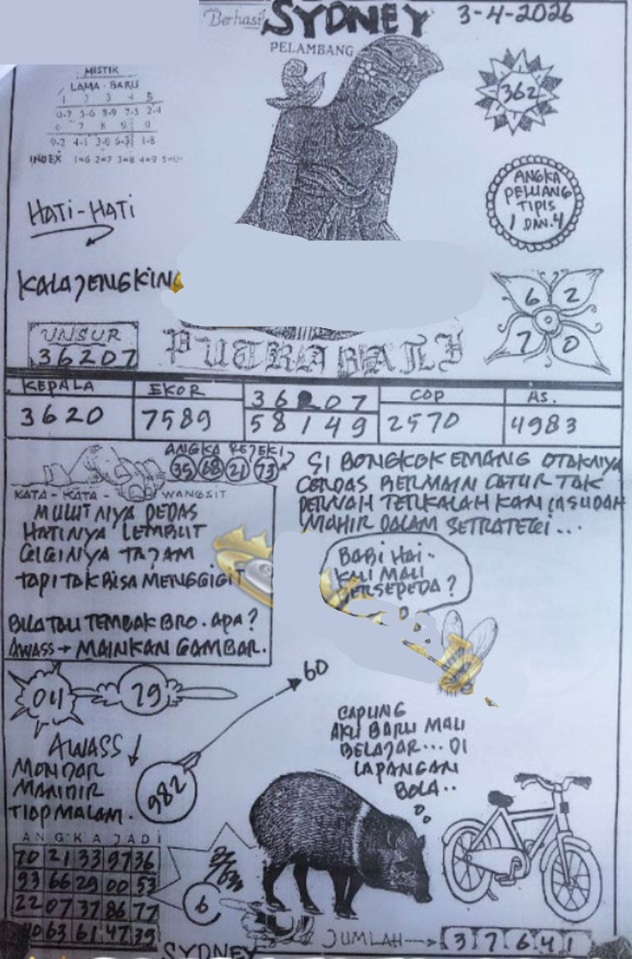 Berhasil SYDNEY 3-4-2026
PELAMBANG
MISTIK
LAMA - BARU
1 2 3 4 5
0-7 5-6 8-9 7-5 2-4
6 7 8 9 0
INDEX 1=6 2=7 3=8 4=9 5=0
362
HATI-HATI
ANGKA
PELUANG
TIPIS
1 DAN 4
KALAJENGKING
6 2
7 0
UNSUR
36207
PUTRA BALI
KEPALA EKOR 36207 COP AS.
3620 7589 58149 2570 4983
ANGKA REJEKI
35 68 21 73
KATA - KATA - WANGSIT
MULUTNIYA PEDAS
HATINYA LEMBUT
GIGINIYA TAJAM
TAPI TAK BISA MENGGIGIT
BILA TAU TEMBAK BRO. APA?
AWASS → MAINKAN GAMBAR.
SI BONGKOK EMANG OTAKNIYA
CERDAS BERMAIN CATUR TAK
PERNAH TERKALAHKAN IA SUDAH
MAHIR DALAM SETRATEGI...
BABI HAI-
KALI MALI
BERSEPEDA?
04 29
60
982
AWASS!
MONDAR
MANDIR
TIAP MALAM.
CAPUNG
AKU BARU MAU
BELAJAR... DI
LAPANGAN
BOLA..
ANGKA JADI
70 21 33 97 36
93 66 29 00 53
22 07 37 86 77
40 63 61 47 39
6
SYDNEY
JUMLAH → 37641